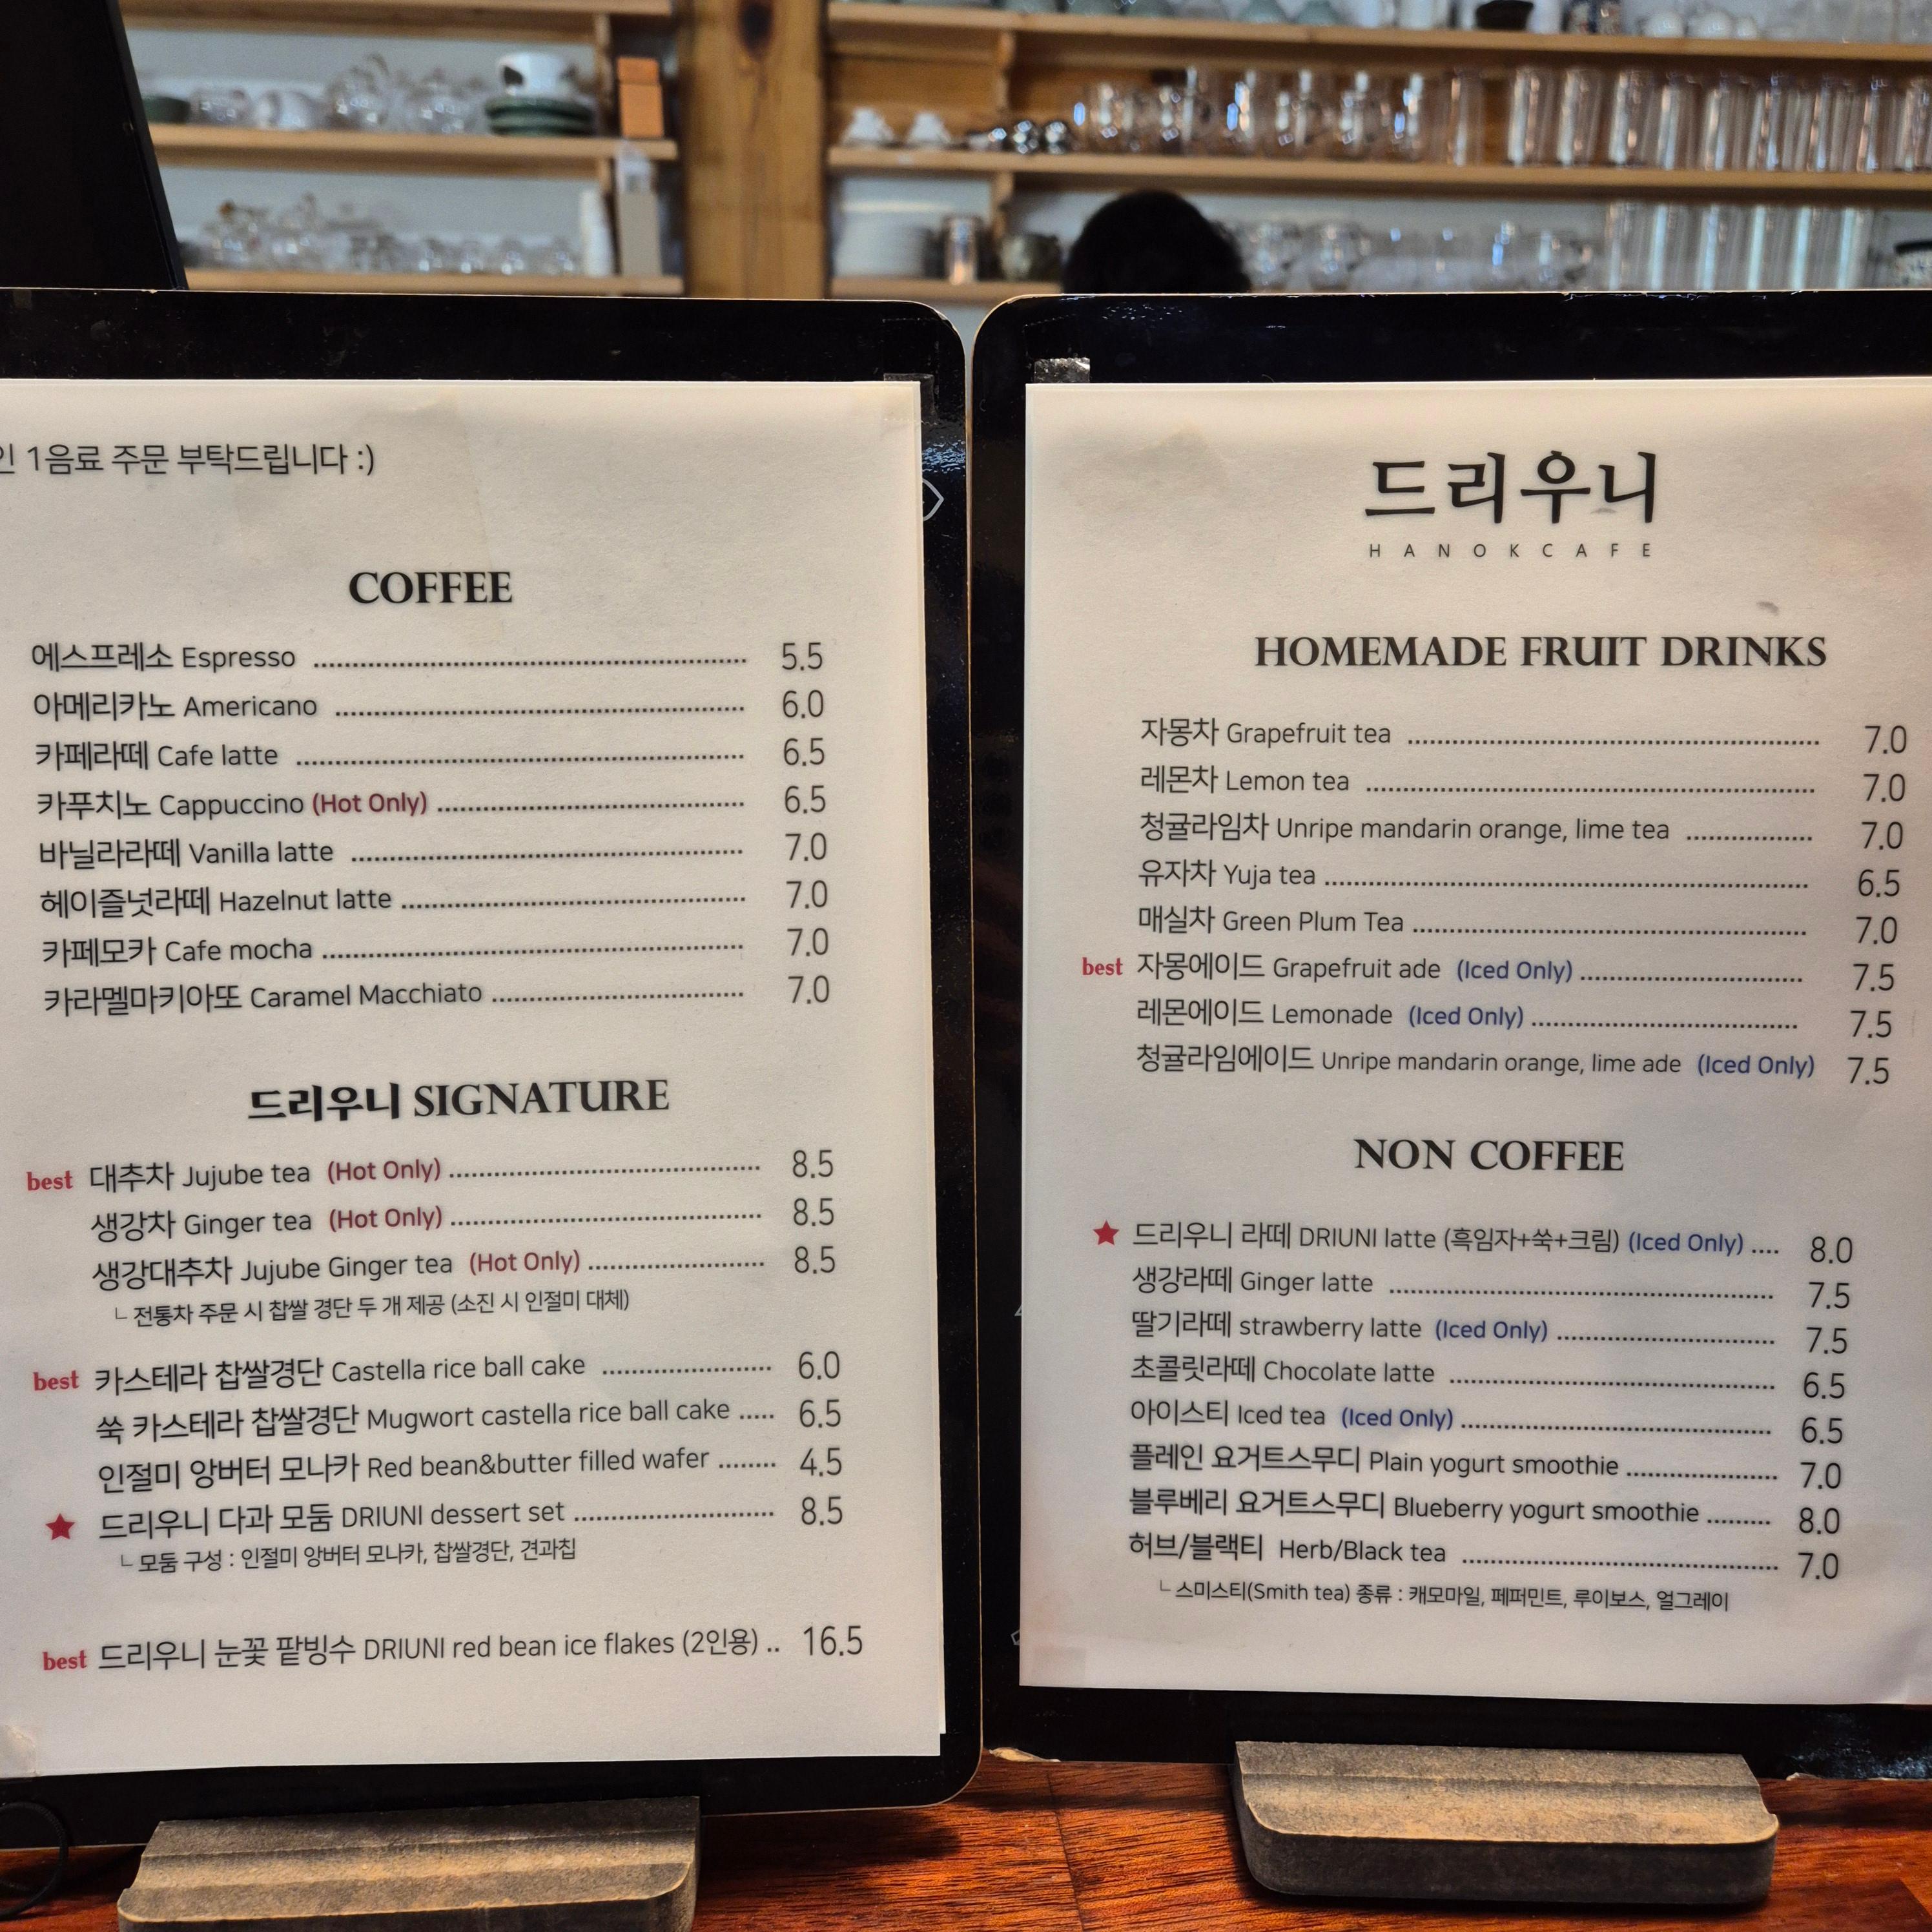 1음료 주문 부탁드립니다 :)
COFFEE
에스프레소 Espresso ........ 5.5
아메리카노 Americano ........ 6.0
카페라떼 Cafe latte ........ 6.5
카푸치노 Cappuccino (Hot Only) ........ 6.5
바닐라라떼 Vanilla latte ........ 7.0
헤이즐넛라떼 Hazelnut latte ........ 7.0
카페모카 Cafe mocha ........ 7.0
카라멜마키아또 Caramel Macchiato ........ 7.0
드리우니 SIGNATURE
best 대추차 Jujube tea (Hot Only) ........ 8.5
생강차 Ginger tea (Hot Only) ........ 8.5
생강대추차 Jujube Ginger tea (Hot Only) ........ 8.5
└ 전통차 주문 시 찹쌀 경단 두 개 제공 (소진 시 인절미 대체)
best 카스테라 찹쌀경단 Castella rice ball cake ........ 6.0
쑥 카스테라 찹쌀경단 Mugwort castella rice ball cake ..... 6.5
인절미 앙버터 모나카 Red bean&butter filled wafer ........ 4.5
★ 드리우니 다과 모둠 DRIUNI dessert set ........ 8.5
└ 모둠 구성 : 인절미 앙버터 모나카, 찹쌀경단, 견과칩
best 드리우니 눈꽃 팥빙수 DRIUNI red bean ice flakes (2인용) .. 16.5
드리우니
HANOKCAFE
HOMEMADE FRUIT DRINKS
자몽차 Grapefruit tea ........ 7.0
레몬차 Lemon tea ........ 7.0
청귤라임차 Unripe mandarin orange, lime tea ........ 7.0
유자차 Yuja tea ........ 6.5
매실차 Green Plum Tea ........ 7.0
best 자몽에이드 Grapefruit ade (Iced Only) ........ 7.5
레몬에이드 Lemonade (Iced Only) ........ 7.5
청귤라임에이드 Unripe mandarin orange, lime ade (Iced Only) 7.5
NON COFFEE
★ 드리우니 라떼 DRIUNI latte (흑임자+쑥+크림) (Iced Only) .... 8.0
생강라떼 Ginger latte ........ 7.5
딸기라떼 strawberry latte (Iced Only) ........ 7.5
초콜릿라떼 Chocolate latte ........ 6.5
아이스티 Iced tea (Iced Only) ........ 6.5
플레인 요거트스무디 Plain yogurt smoothie ........ 7.0
블루베리 요거트스무디 Blueberry yogurt smoothie ........ 8.0
허브/블랙티 Herb/Black tea ........ 7.0
└ 스미스티(Smith tea) 종류 : 캐모마일, 페퍼민트, 루이보스, 얼그레이